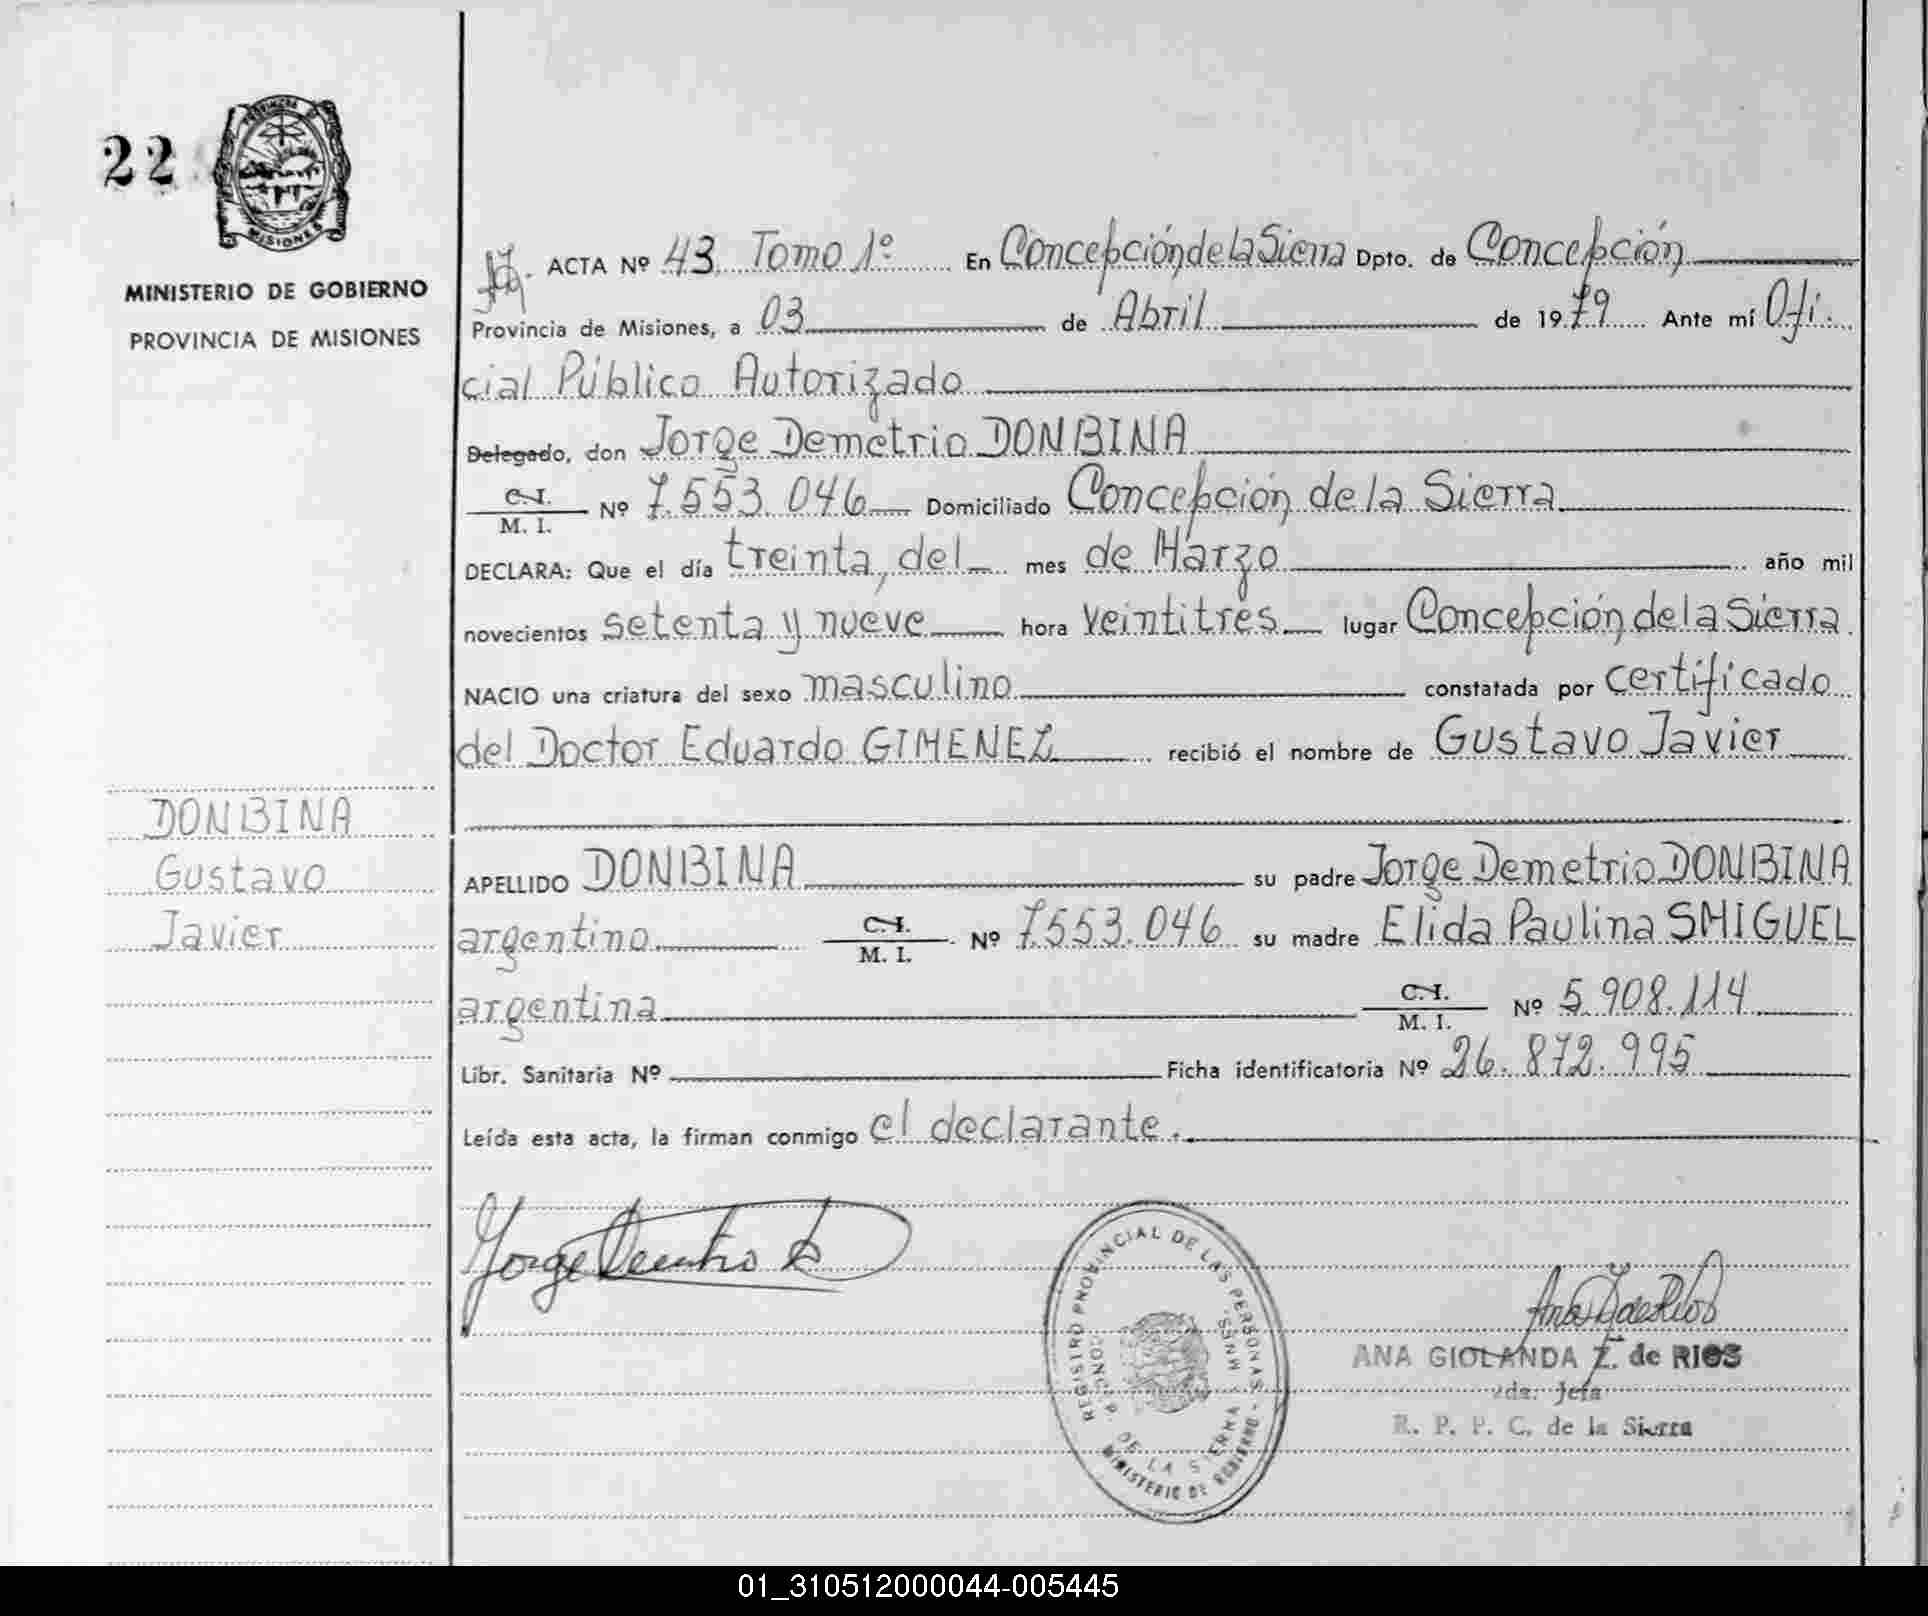 22
PROVINCIA DE
MISIONES
MINISTERIO DE GOBIERNO
PROVINCIA DE MISIONES
ACTA Nº 43 Tomo 1º En Concepción de la Sierra Dpto. de Concepción
Provincia de Misiones, a 03 de Abril de 1979 Ante mí Ofi-
cial Público Autorizado
Delegado, don Jorge Demetrio DONBINA
C. I.
M. I. Nº 7.553.046 Domiciliado Concepción de la Sierra
DECLARA: Que el día treinta, del mes de Marzo año mil
novecientos setenta y nueve hora veintitres lugar Concepción de la Sierra
NACIO una criatura del sexo masculino constatada por certificado
del Doctor Eduardo GIMENEZ recibió el nombre de Gustavo Javier
DONBINA
Gustavo
Javier
APELLIDO DONBINA su padre Jorge Demetrio DONBINA
argentino C. I.
M. I. Nº 7.553.046 su madre Elida Paulina SMIGUEL
argentina C. I.
M. I. Nº 5.908.114
Libr. Sanitaria Nº Ficha identificatoria Nº 26.872.995
Leída esta acta, la firman conmigo el declarante.
REGISTRO PROVINCIAL DE LAS PERSONAS
CONCP. DE LA SIERRA MNES.
MINISTERIO DE GOBIERNO
ANA GIOLANDA Z. de RIOS
2da. Jefa
R. P. P. C. de la Sierra
01_310512000044-005445